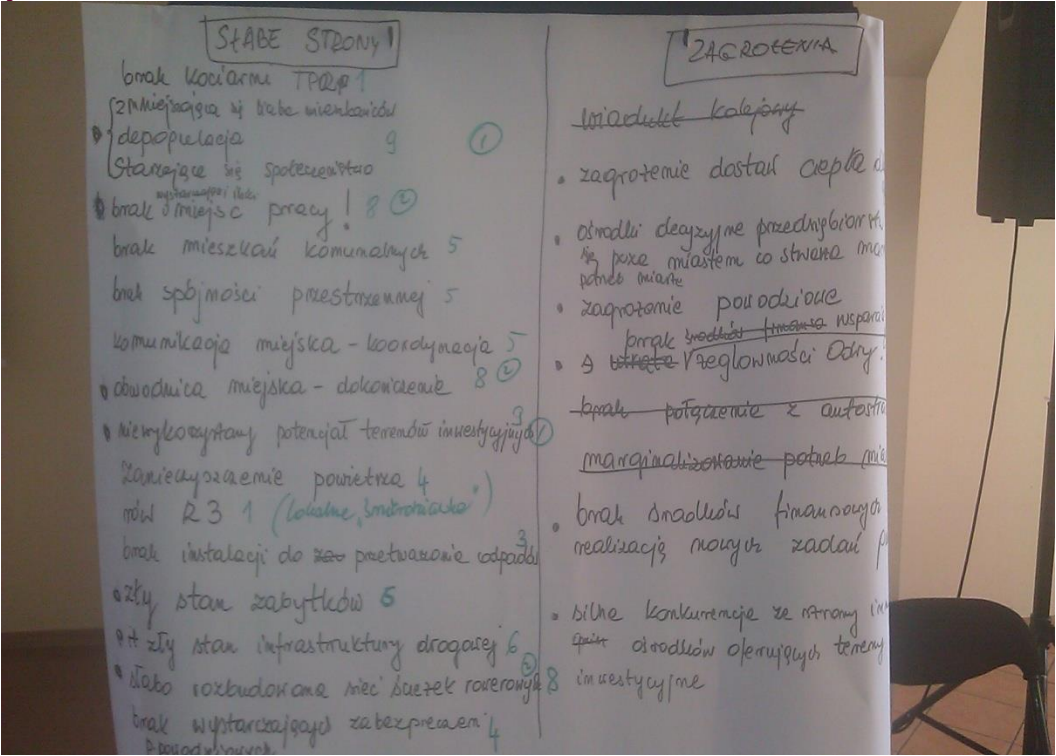 SŁABE STRONY
brak kociarni TPZP 1
zmniejszająca się liczba mieszkańców
depopulacja 9 1
Starzejące się społeczeństwo
wystarczającej ilości
brak miejsc pracy! 8 2
brak mieszkań komunalnych 5
brak spójności przestrzennej 5
komunikacja miejska - koordynacja 5
obwodnica miejska - dokończenie 8 2
niewykorzystany potencjał terenów inwestycyjnych 9 1
zanieczyszczenie powietrza 4
rów R3 1 (lokalne,
brak instalacji do przetwarzania odpadów 3
zły stan zabytków 6
zły stan infrastruktury drogowej 6
słabo rozbudowana sieć ścieżek rowerowych 8 2
brak wystarczających zabezpieczeń 4
ppowodziowych
ZAGROŻENIA
wiadukt kolejowy
• zagrożenie dostaw ciepła
• ośrodki decyzyjne
są poza miastem co stwarza
potrzeb miasta
• zagrożenie powodziowe
brak środków
• utrata żeglowności Odry!
brak połączenia z
marginalizowanie potrzeb
• brak środków finansowych
realizację nowych zadań
• silna konkurencja ze strony
ośrodków oferujących tereny
inwestycyjne